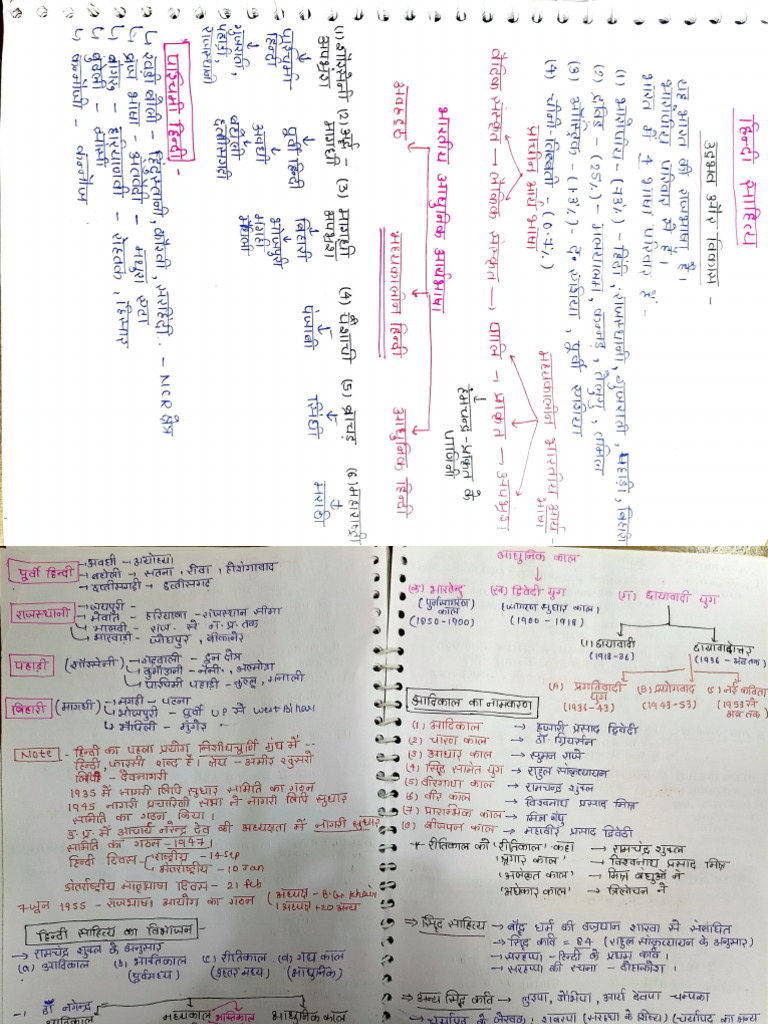 हिन्दी साहित्य
उद्भव और विकास –
यह भारत की राजभाषा है।
भारोपीय परिवार से हैं।
भारत में 4 भाषा परिवार हैं -
(1) भारोपीय - (73%) - हिंदी, राजस्थानी, गुजराती, पहाड़ी, बिहारी
(2) द्रविड़ - (25%) - मलयालम, कन्नड़, तेलुगु, तमिल
(3) ऑस्ट्रिक - (1.3%) -
(4) चीनी-तिब्बती - (0.7%)
प्राचीन आर्य भाषा
मध्यकालीन भारतीय आर्य भाषा
वैदिक संस्कृत → लौकिक संस्कृत → पालि → प्राकृत → अपभ्रंश
हेमचन्द्र - प्राकृत के पाणिनी
भारतीय आधुनिक आर्यभाषा
अवहट्ठ
मध्यकालीन हिन्दी
आधुनिक हिन्दी
(1) शौरसेनी अपभ्रंश (2) अर्द्ध मागधी - (3) मागधी अपभ्रंश (4) पैशाची (5) ब्राचड़ (6) महाराष्ट्री
पश्चिमी हिन्दी पूर्वी हिन्दी बिहारी पंजाबी सिंधी मराठी
गुजराती, पहाड़ी, राजस्थानी
अवधी बघेली छत्तीसगढ़ी
भोजपुरी मगही मैथिली
पश्चिमी हिन्दी -
↳ खड़ी बोली - हिंदुस्तानी, कौरवी, सरहिंदी - NCR क्षेत्र
↳ ब्रज भाषा - मथुरा
↳ बांगरू - हरियाणवी - रोहतक, हिसार
↳ बुंदेली - झाँसी
↳ कन्नौजी - कन्नौज
पूर्वी हिन्दी
→ अवधी - अयोध्या
→ बघेली - सतना, रीवा, होशंगाबाद
→ छत्तीसगढ़ी - छत्तीसगढ़
राजस्थानी
→ जयपुरी -
→ मेवाती - हरियाणा - राजस्थान सीमा
→ मालवी - राज. से म.प्र. तक
→ मारवाड़ी - जोधपुर, बीकानेर
पहाड़ी (शौरसेनी)
→ गढ़वाली - दून क्षेत्र
→ कुमाऊनी - नैनी, अल्मोड़ा
→ पश्चिमी पहाड़ी - कुल्लू, मनाली
बिहारी (मागधी)
→ मगही - पटना
→ भोजपुरी - पूर्वी UP से West Bihar
→ मैथिली - मुंगेर
Note - हिन्दी का पहला प्रयोग निशीथचूर्णि ग्रंथ में --
हिन्दी, फारसी शब्द है। श्रेय - अमीर खुसरो
लिपि - देवनागरी
1935 में नागरी लिपि सुधार समिति का गठन
1945 नागरी प्रचारिणी सभा ने नागरी लिपि सुधार
समिति का गठन किया।
उ.प्र. में आचार्य नरेन्द्र देव की अध्यक्षता में नागरी सुधार
समिति का गठन - 1947।
हिन्दी दिवस - राष्ट्रीय - 14 Sep
अंतर्राष्ट्रीय - 10 Jan
अंतर्राष्ट्रीय मातृभाषा दिवस - 21 Feb
7 जून 1955 - राजभाषा आयोग का गठन (अध्यक्ष - B.G. 1 अध्यक्ष + 20 अन्य
हिन्दी साहित्य का विभाजन -
→ रामचंद्र शुक्ल के अनुसार
(a) आदिकाल (b) भक्तिकाल (c) रीतिकाल (d) गद्य काल
(पूर्वमध्य) (उत्तर मध्य) (आधुनिक)
-1 डॉ नगेन्द्र
आदिकाल मध्यकाल भक्तिकाल आधुनिक काल
आधुनिक काल
(क) भारतेन्दु (ख) द्विवेदी युग (ग) छायावादी युग
(पुर्नजागरण काल) (जागरण सुधार काल)
(1850-1900) (1900-1918)
(1) छायावादी छायावादोत्तर
(1918-36) (1936 - अब तक)
(A) प्रगतिवादी युग (B) प्रयोगवाद (C) नई कविता
(1936-43) (1943-53) (1953 से अब तक)
आदिकाल का नामकरण
(1) आदिकाल → हजारी प्रसाद द्विवेदी
(2) चारण काल → डॉ. ग्रियर्सन
(3) आधार काल → सुमन राजे
(4) सिद्ध सामंत युग → राहुल सांकृत्यायन
(5) वीरगाथा काल → रामचंद्र शुक्ल
(6) वीर काल → विश्वनाथ प्रसाद मिश्र
(7) प्रारम्भिक काल → मिश्र बंधु
(8) बीजवपन काल → महावीर प्रसाद द्विवेदी
* रीतिकाल को 'रीतिकाल' कहा → रामचंद्र शुक्ल
'श्रृंगार काल' → विश्वनाथ प्रसाद मिश्र
'अलंकृत काल' → मिश्र बंधुओं ने
'अंधकार काल' → त्रिलोचन ने
⇒ सिद्ध साहित्य → बौद्ध धर्म की वज्रयान शाखा से संबंधित
→ सिद्ध कवि = 84 (राहुल सांकृत्यायन के अनुसार)
→ सरहपा - हिन्दी के प्रथम कवि।
→ सरहपा की रचना - दोहाकोश।
⇒ अन्य सिद्ध कवि → लुइपा, डोम्भिपा, आर्य देवपा
→ चर्यापद के लेखक, शबरपा (सरहपा के शिष्य) (चर्यापद का अन्य